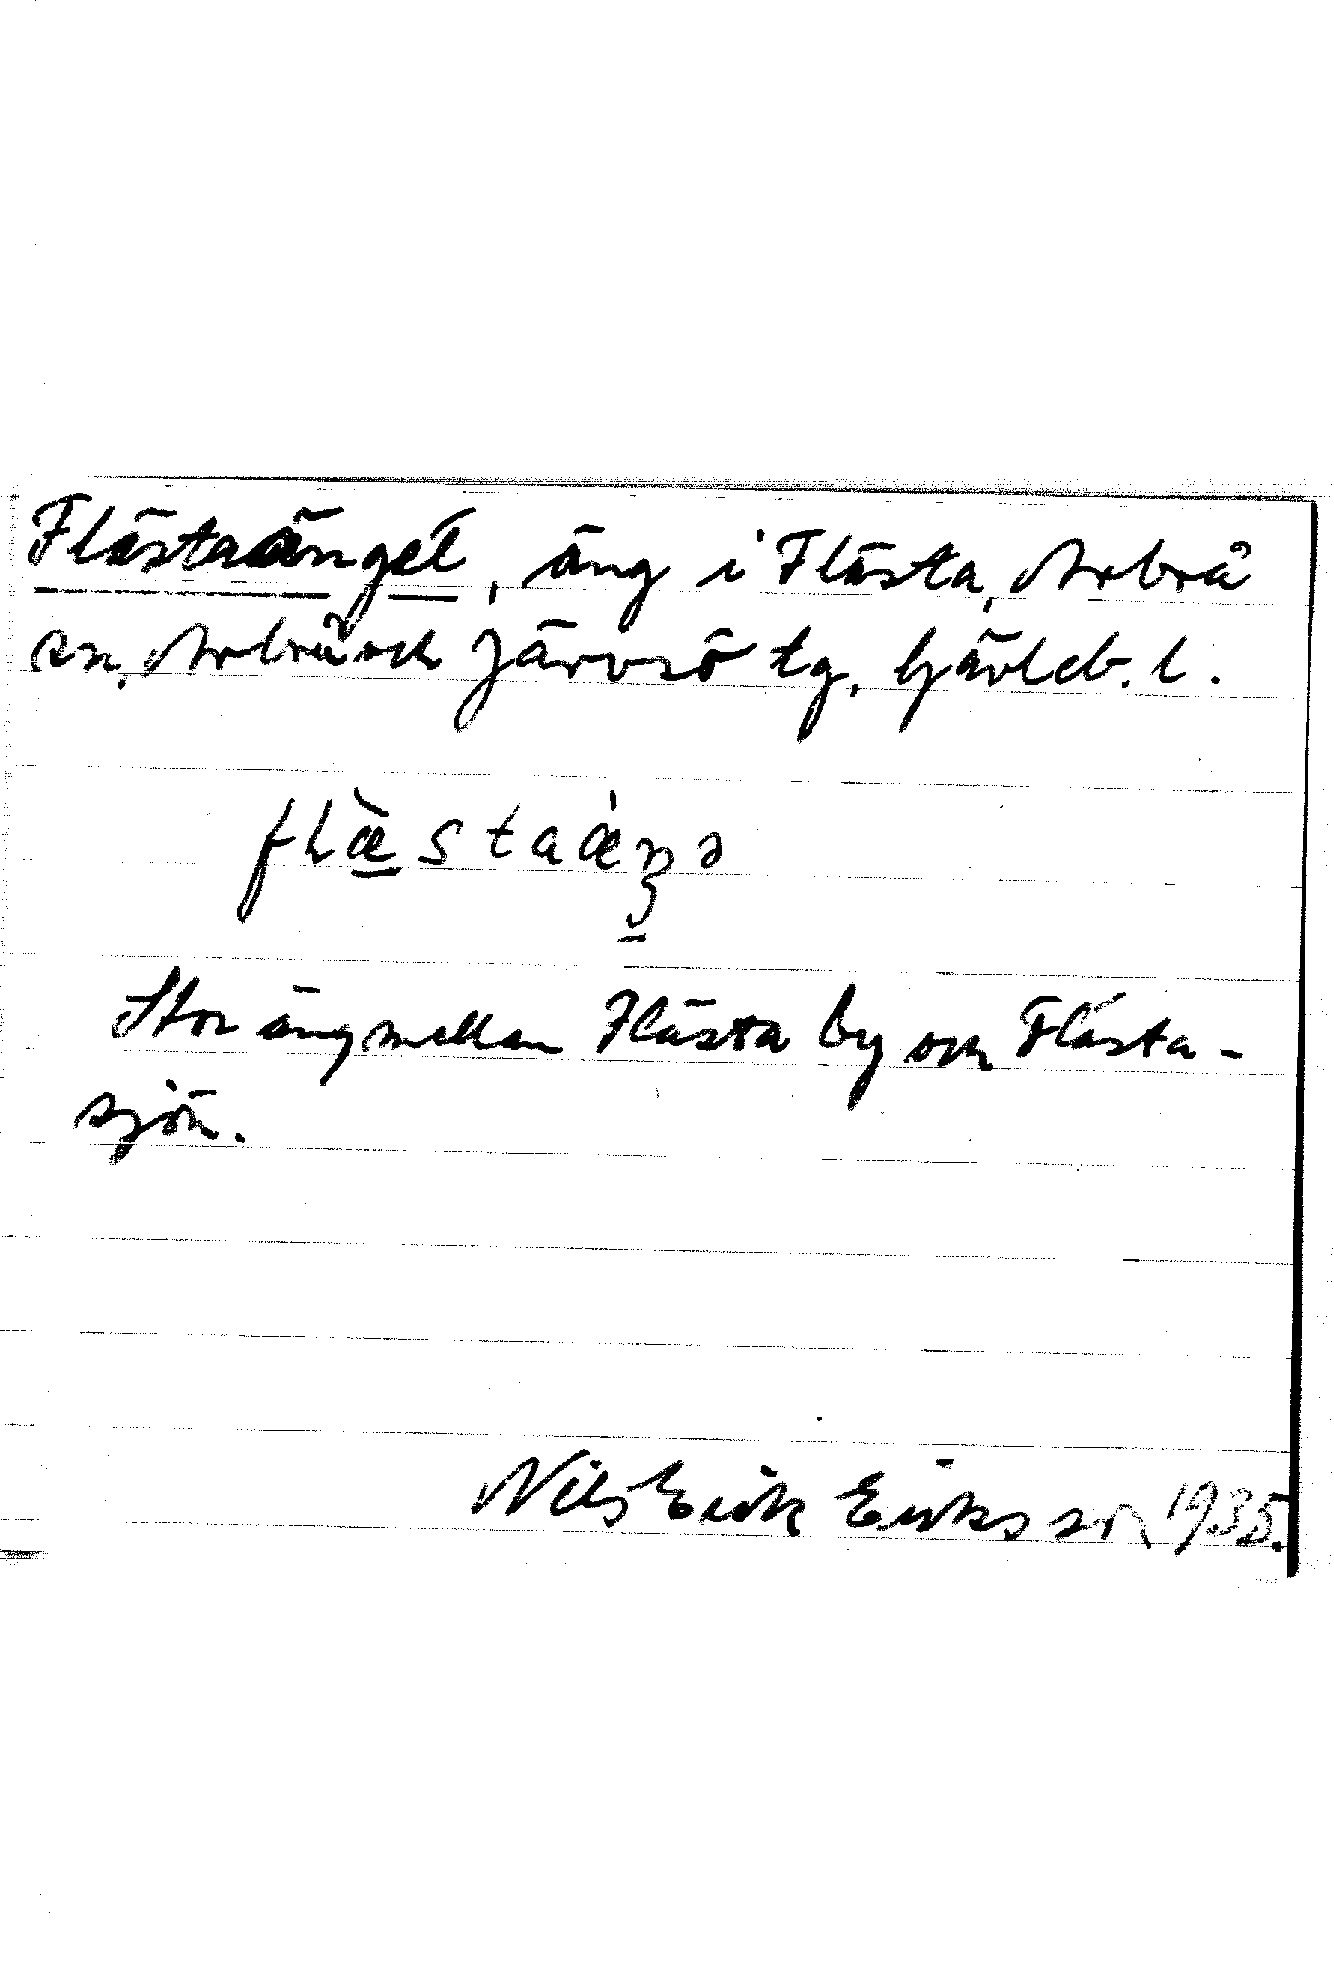 Flästaänget, äng i Flästa, Arbrå
sn, Arbrå och Järvsö tg, Gävleb. l.
flæ̀staæ̀ŋə
Stor äng mellan Flästa by och Flästa-
sjön.
Nils Erik Eriksson 1935.